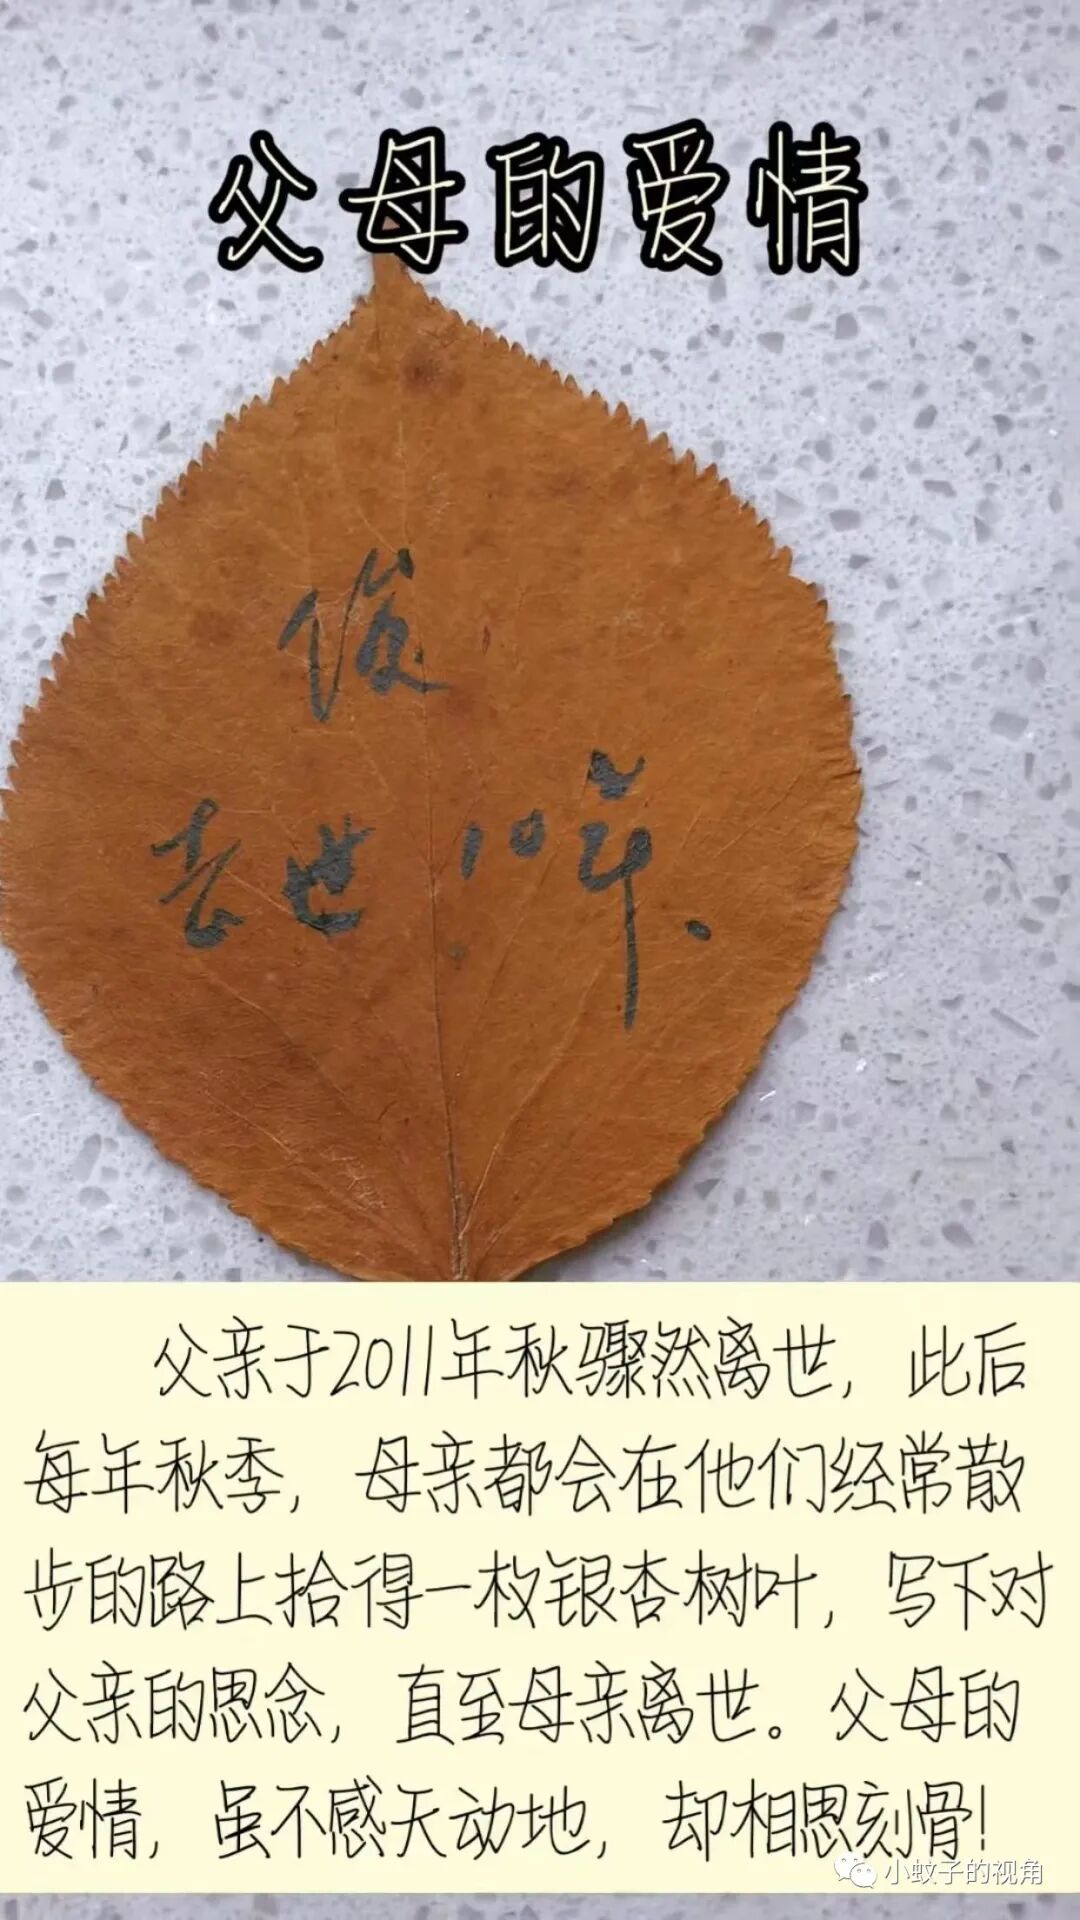 父母的爱情
俊
去世10年.
父亲于2011年秋骤然离世，此后
每年秋季，母亲都会在他们经常散
步的路上拾得一枚银杏树叶，写下对
父亲的思念，直至母亲离世。父母的
爱情，虽不感天动地，却相思刻骨！
小蚊子的视角